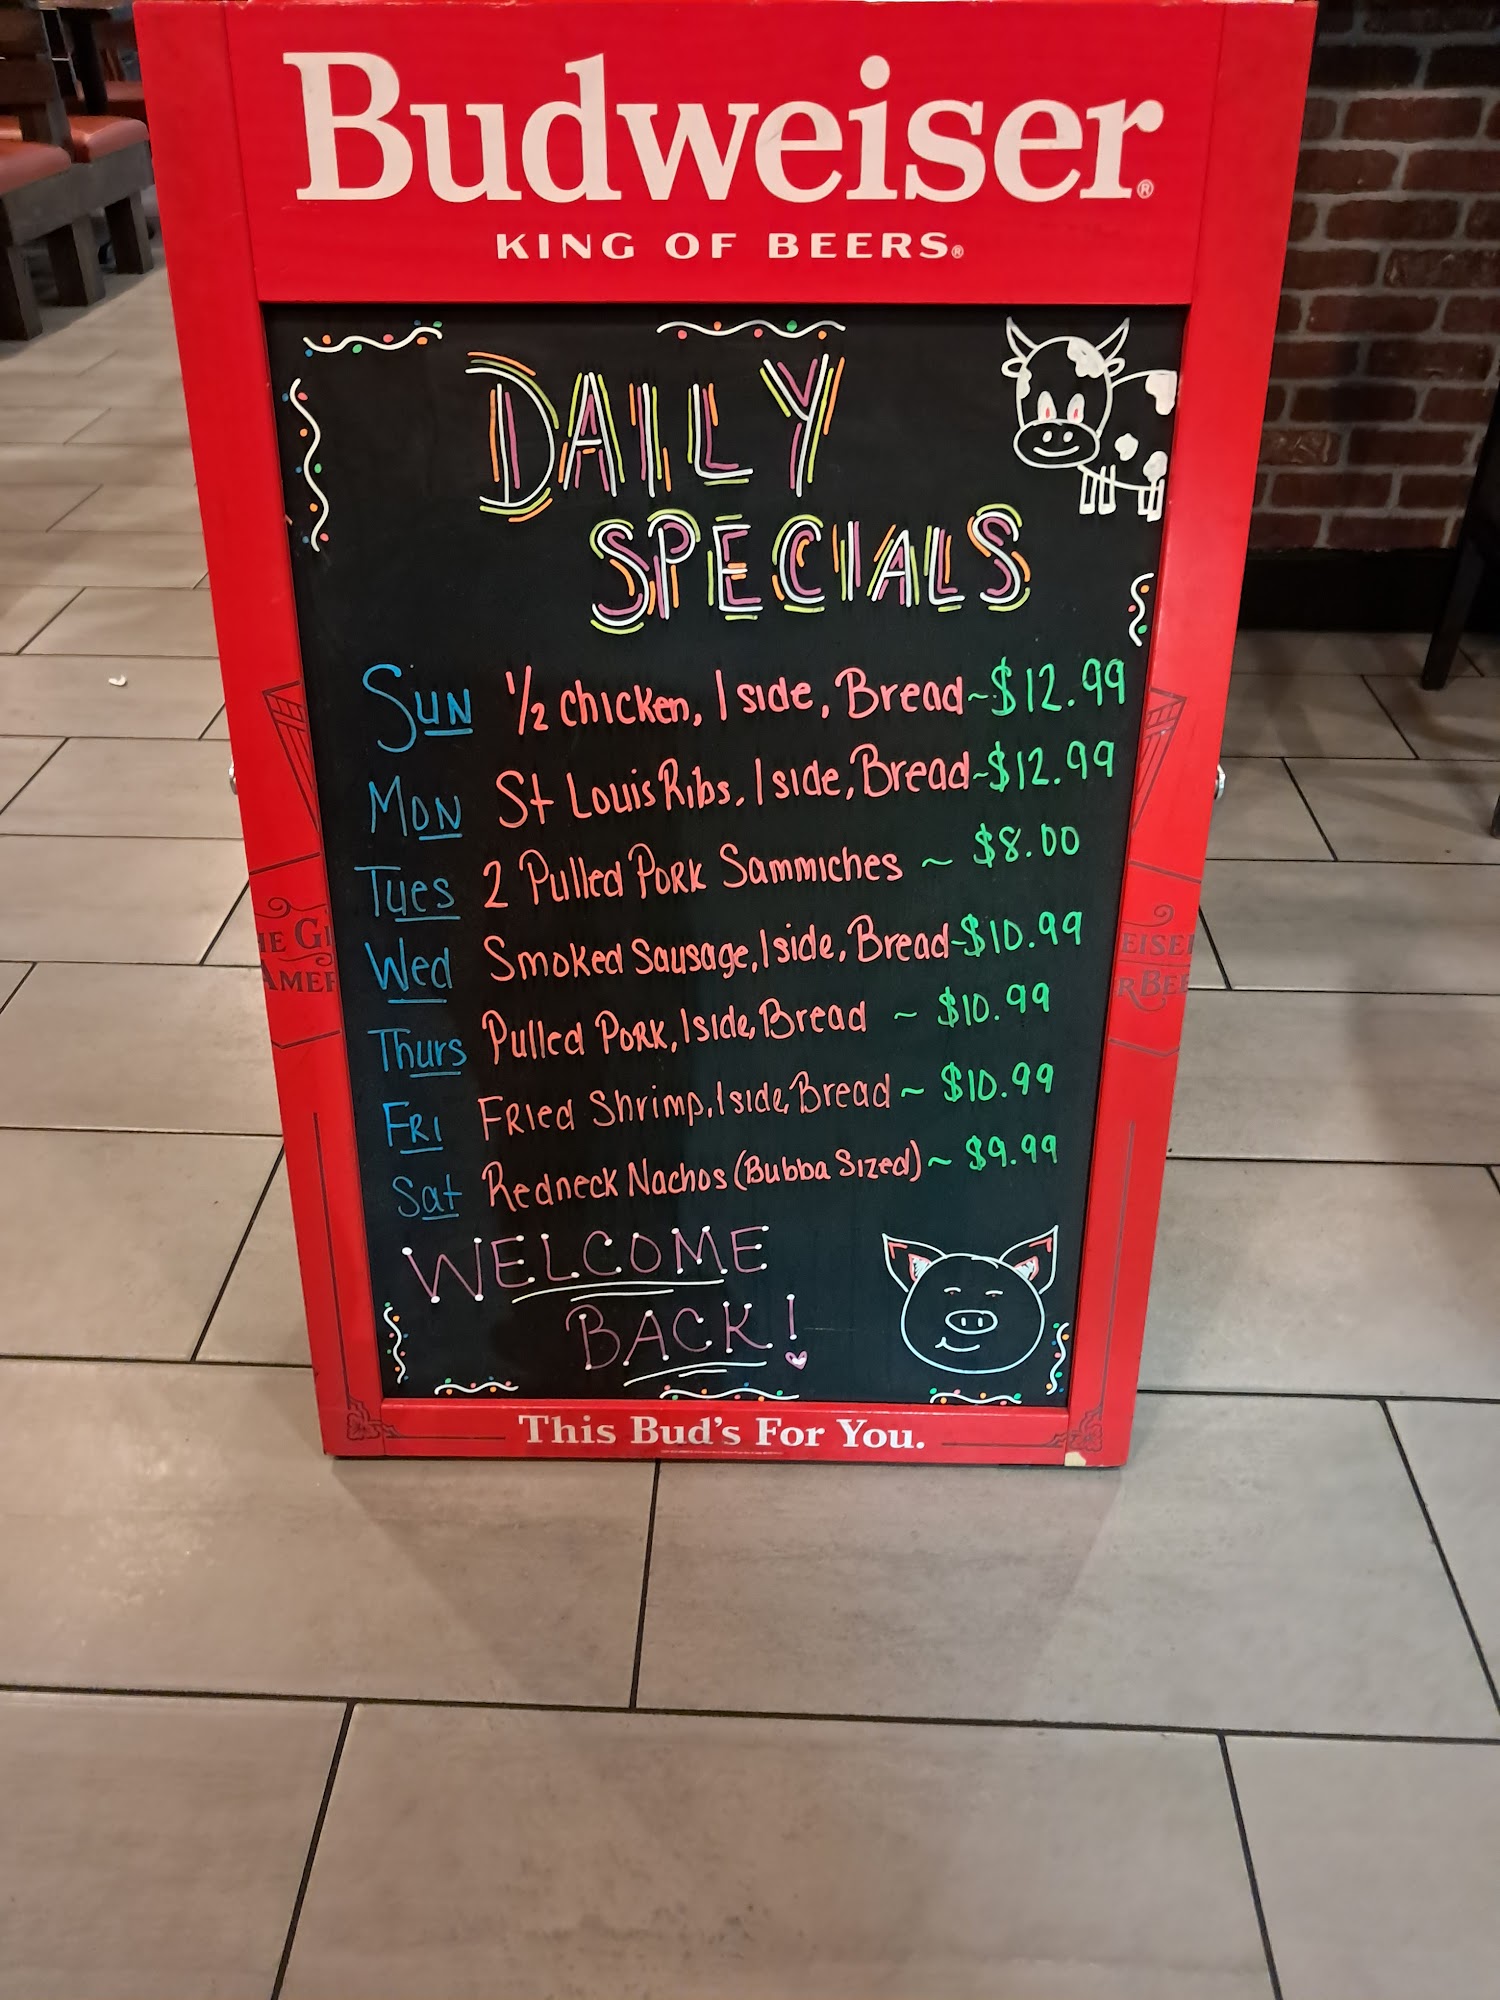 Budweiser®
KING OF BEERS®
DAILY
SPECIALS
SUN ½ chicken, 1 side, Bread ~ $12.99
MON St Louis Ribs, 1 side, Bread ~ $12.99
Tues 2 Pulled Pork Sammiches ~ $8.00
Wed Smoked Sausage, 1 side, Bread ~ $10.99
Thurs Pulled Pork, 1 side, Bread ~ $10.99
FRI Fried Shrimp, 1 side, Bread ~ $10.99
Sat Redneck Nachos (Bubba Sized) ~ $9.99
WELCOME
BACK!
This Bud's For You.